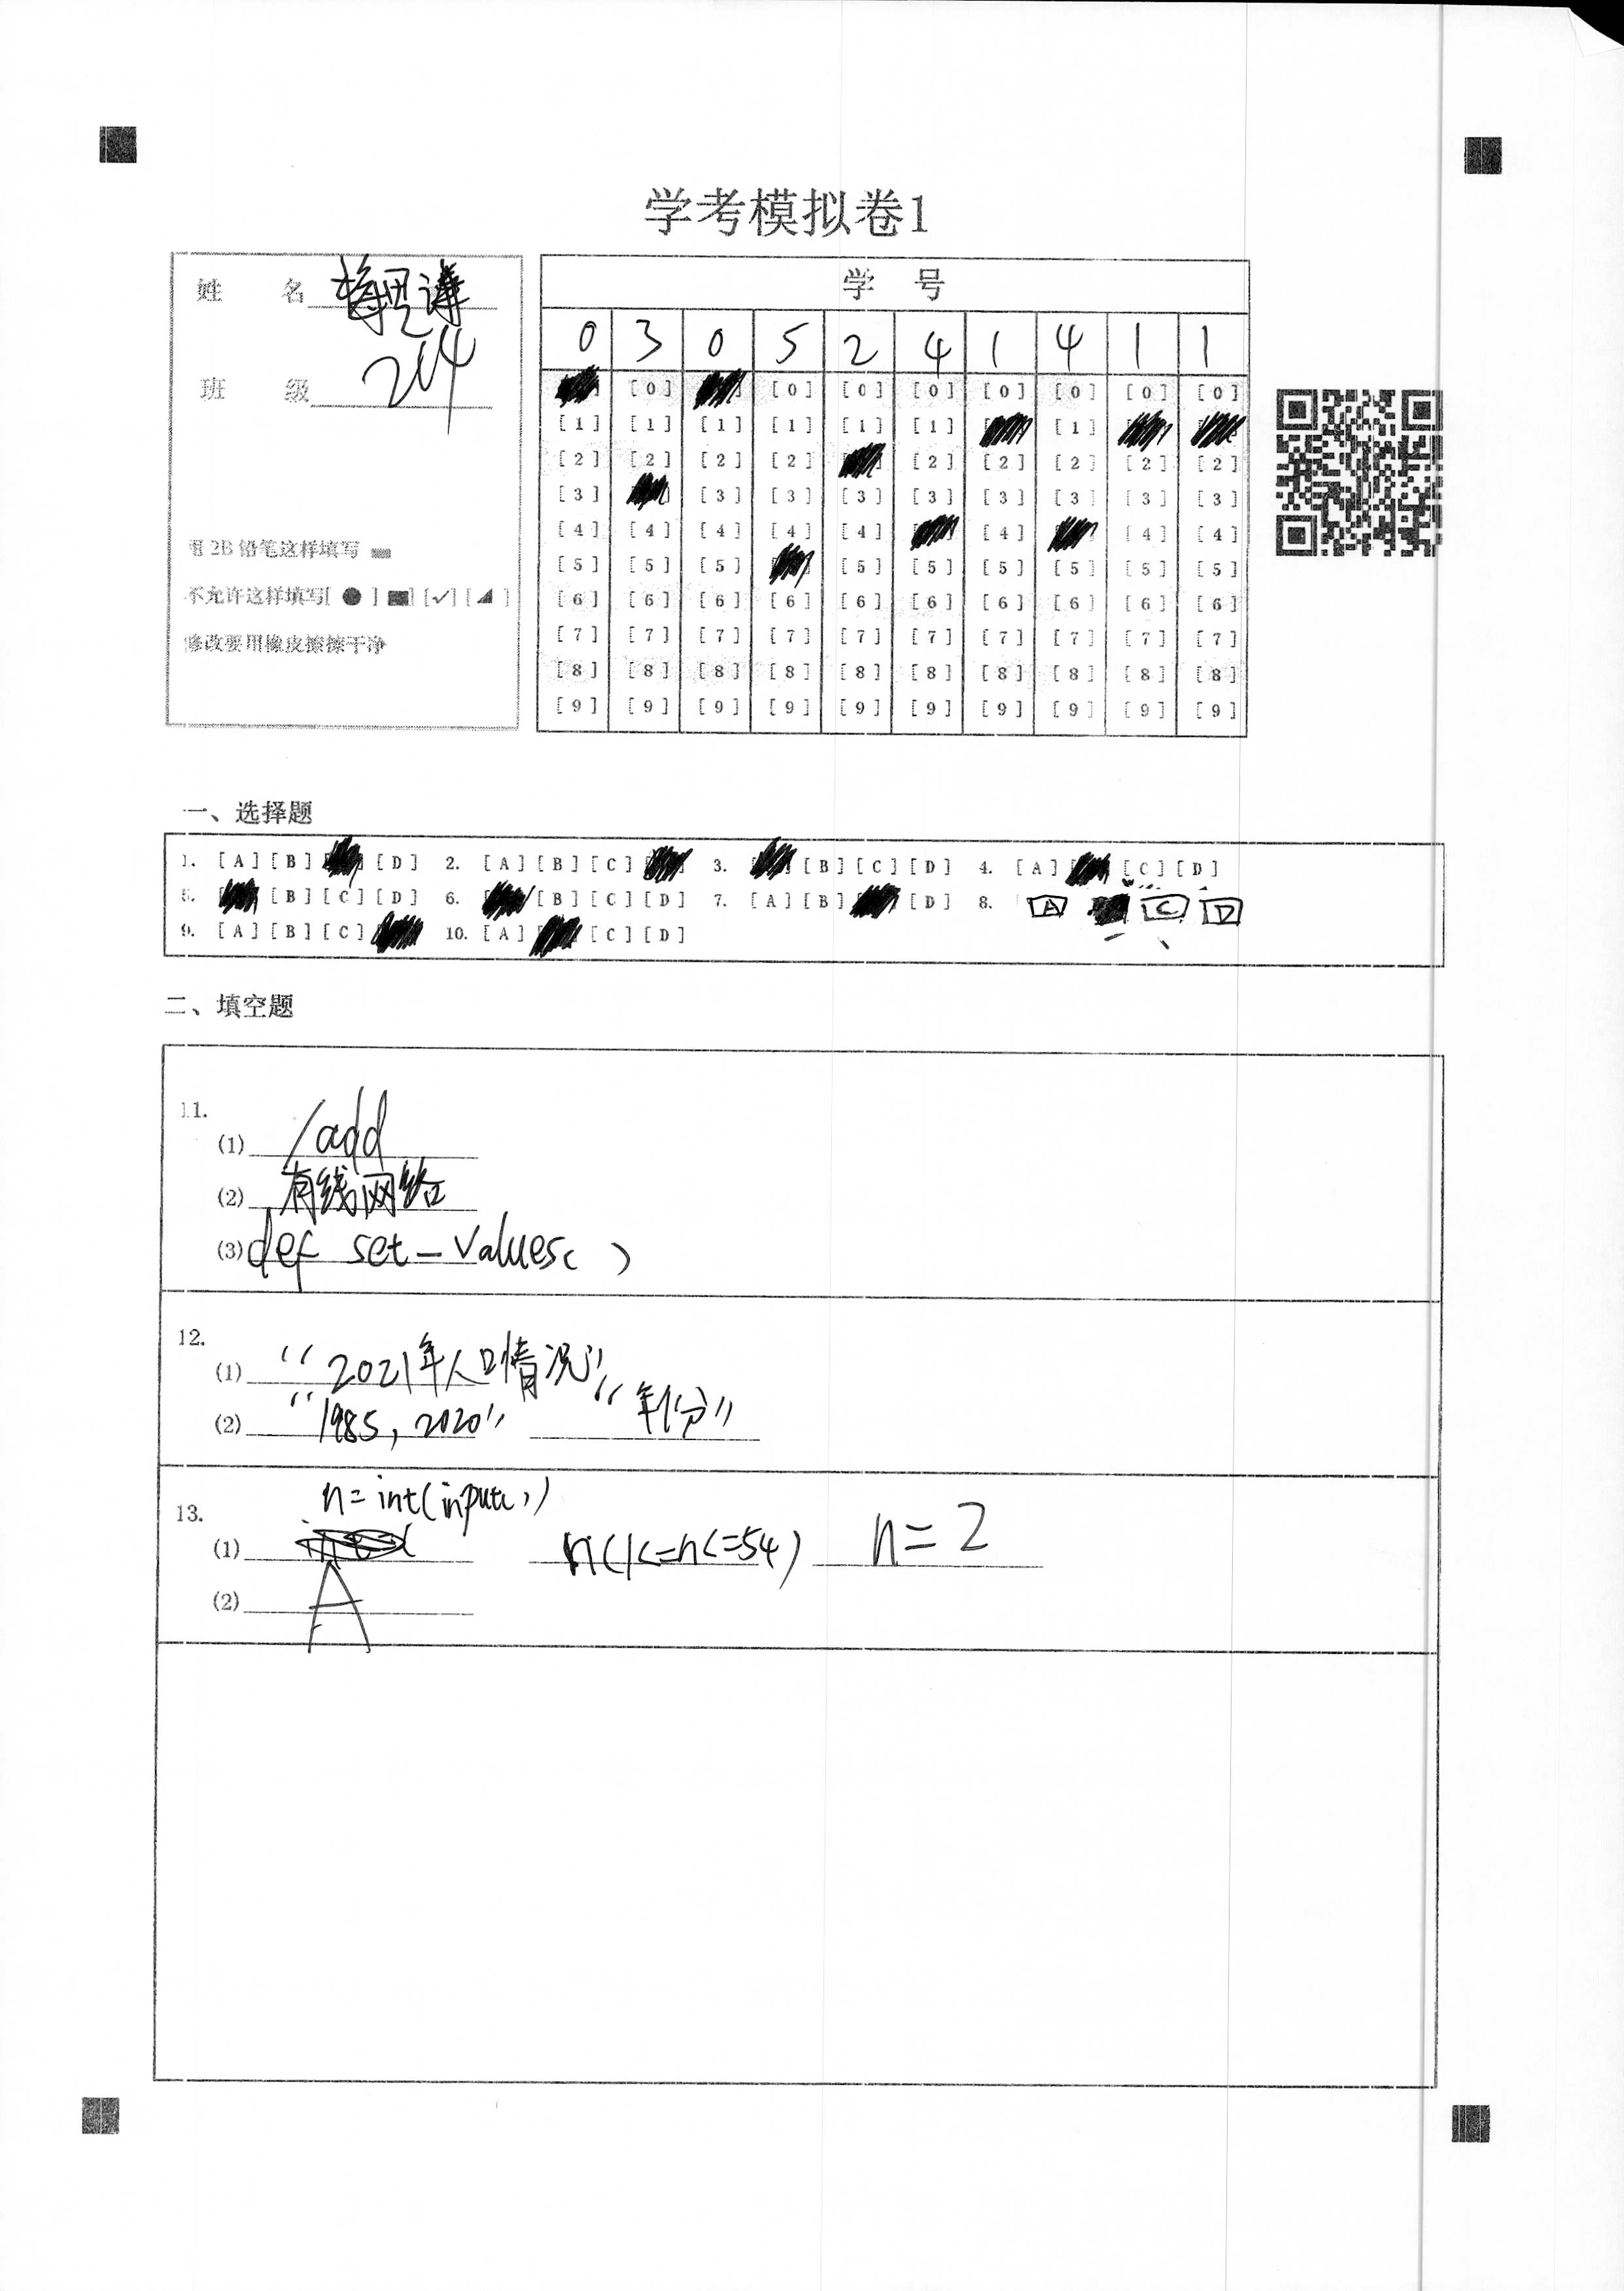 学考模拟卷1
姓 名
班 级 204
用 2B 铅笔这样填写
不允许这样填写[ ● ] [✓] [ ]
修改要用橡皮擦擦干净
学 号
0 3 0 5 2 4 1 4 1 1
[0] [0] [0] [0] [0] [0] [0] [0]
[1] [1] [1] [1] [1] [1] [1]
[2] [2] [2] [2] [2] [2] [2] [2] [2]
[3] [3] [3] [3] [3] [3] [3] [3] [3]
[4] [4] [4] [4] [4] [4] [4] [4]
[5] [5] [5] [5] [5] [5] [5] [5] [5]
[6] [6] [6] [6] [6] [6] [6] [6] [6] [6]
[7] [7] [7] [7] [7] [7] [7] [7] [7] [7]
[8] [8] [8] [8] [8] [8] [8] [8] [8] [8]
[9] [9] [9] [9] [9] [9] [9] [9] [9] [9]
一、选择题
1. [A] [B] [D] 2. [A] [B] [C] 3. [B] [C] [D] 4. [A] [C] [D]
5. [B] [C] [D] 6. [B] [C] [D] 7. [A] [B] [D] 8. A C D
9. [A] [B] [C] 10. [A] [C] [D]
二、填空题
11.
(1) /add
(2) 有线网络
(3) def set_values( )
12.
(1) “2021年人口情况”
(2) “1985, 2020” “年份”
13. n=int(input())
(1) n(1<=n<=54) n=2
(2) A